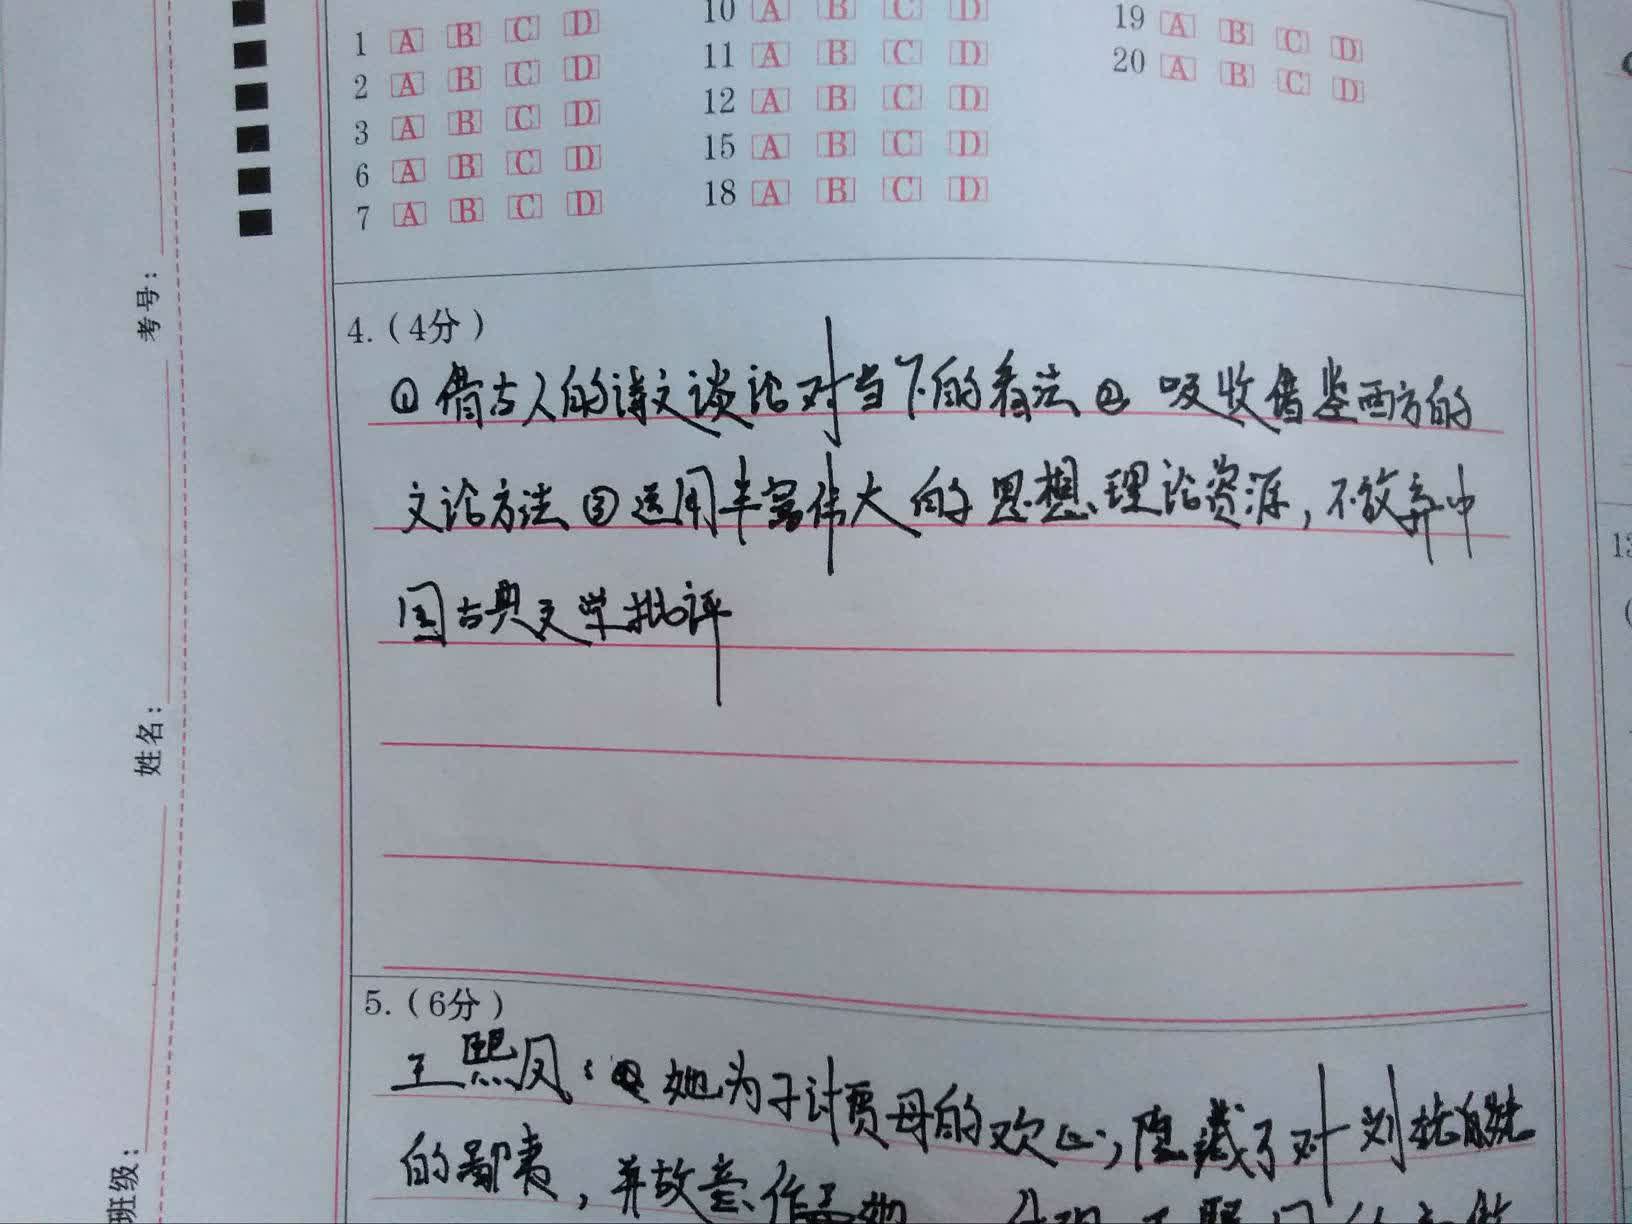 1 A B C D
2 A B C D
3 A B C D
6 A B C D
7 A B C D
10 A B C D
11 A B C D
12 A B C D
15 A B C D
18 A B C D
19 A B C D
20 A B C D
考号：
姓名：
班级：
4.（4分）
①借古人的诗文谈论对当下的看法② 吸收借鉴西方的
文论方法③运用丰富伟大的思想、理论资源，不放弃中
国古典文学批评
5.（6分）
王熙凤：她为了讨贾母的欢心，隐藏了对刘姥姥
的鄙夷，并故意作
13